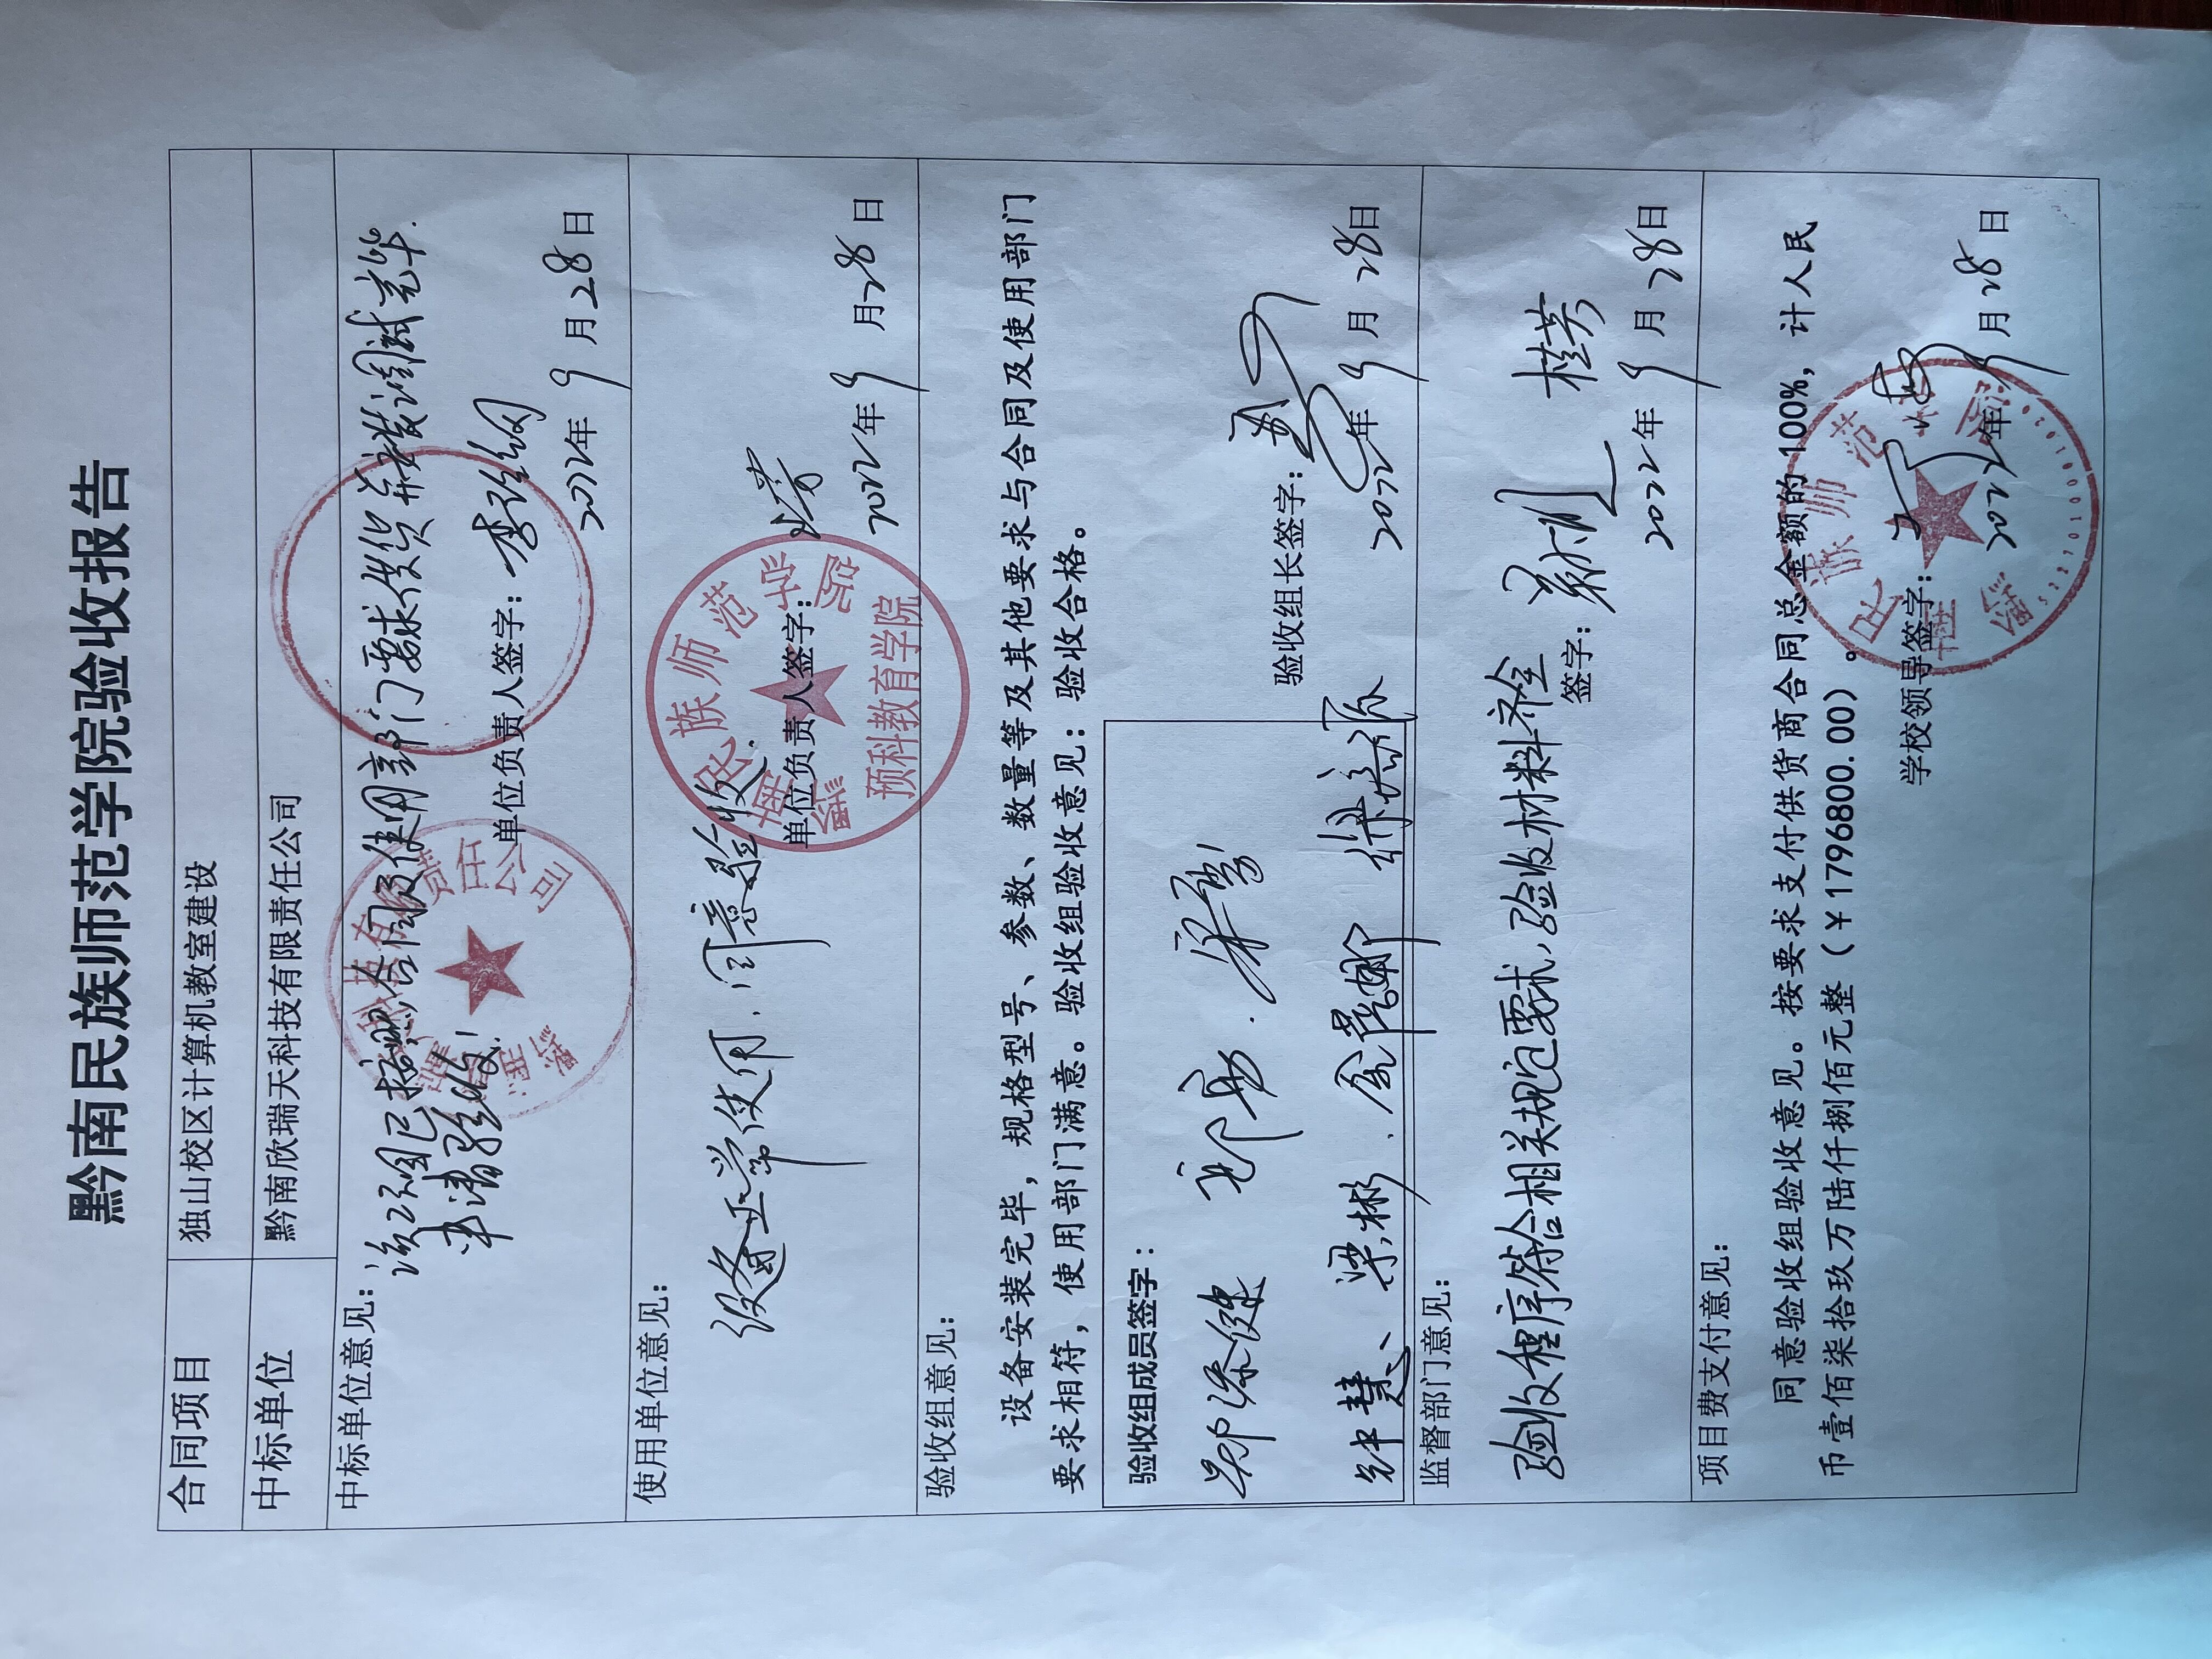 黔南民族师范学院验收报告
合同项目 独山校区计算机教室建设
中标单位 黔南欣瑞天科技有限责任公司
中标单位意见：
该项目已按照合同及使用部门要求供货安装调试完毕.
申请验收!
单位负责人签字：
2022年 9 月 28 日
使用单位意见：
设备正常使用，同意验收.
单位负责人签字：
2022年 9 月 28 日
民族师范学院
预科教育学院
验收组意见：
设备安装完毕，规格型号、参数、数量等及其他要求与合同及使用部门
要求相符，使用部门满意。验收组验收意见：验收合格。
验收组成员签字：
梁彬
验收组长签字：
2022年 9 月 28日
监督部门意见：
验收程序符合相关规定要求，验收材料齐全
签字：
2022年 9 月 28日
项目费支付意见：
同意验收组验收意见。按要求支付供货商合同总金额的100%，计人民
币壹佰柒拾玖万陆仟捌佰元整（￥1796800.00）。
学校领导签字：
2022年 9 月 28 日